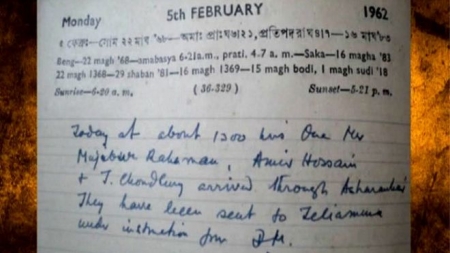 Monday 5th FEBRUARY 1962
Beng—22 magh '68—amabasya 6-21a.m., prati. 4.7 a. m.—Saka—16 magha '83
22 magh 1368—29 shaban '81—16 magh 1369—15 magh bodi, 1 magh sudi '18
Sunrise—6-20 a.m. (36-329) Sunset—5-21 p.m.
Today at about 1300 hrs One Mr
Mujabur Rahaman, Amir Hossain
& T. Choudhury arrived through Asharambari
They have been sent to Teliamura
under instruction from D.M.